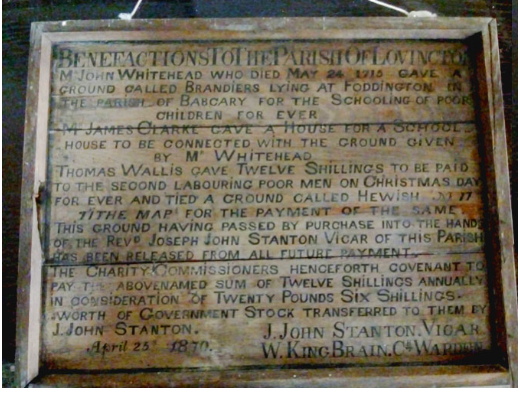 BENEFACTIONS TO THE PARISH OF LOVINGTON
MR JOHN WHITEHEAD WHO DIED MAY 24 1715 GAVE A
GROUND CALLED BRANDIERS LYING AT FODDINGTON IN
THE PARISH OF BABCARY FOR THE SCHOOLING OF POOR
CHILDREN FOR EVER
MR JAMES CLARKE GAVE A HOUSE FOR A SCHOOL
HOUSE TO BE CONNECTED WITH THE GROUND GIVEN
BY MR WHITEHEAD
THOMAS WALLIS GAVE TWELVE SHILLINGS TO BE PAID
TO THE SECOND LABOURING POOR MEN ON CHRISTMAS DAY
FOR EVER AND TIED A GROUND CALLED HEWISH
THE MAP FOR THE PAYMENT OF THE SAME
THIS GROUND HAVING PASSED BY PURCHASE INTO THE HANDS
OF THE REVD. JOSEPH JOHN STANTON VICAR OF THIS PARISH
HAS BEEN RELEASED FROM ALL FUTURE PAYMENT.
THE CHARITY COMMISSIONERS HENCEFORTH COVENANT TO
PAY THE ABOVENAMED SUM OF TWELVE SHILLINGS ANNUALLY
IN CONSIDERATION OF TWENTY POUNDS SIX SHILLINGS.
WORTH OF GOVERNMENT STOCK TRANSFERRED TO THEM BY
J. JOHN STANTON. J. JOHN STANTON. VICAR.
April 25th 1870. W. KING BRAIN. CH. WARDEN